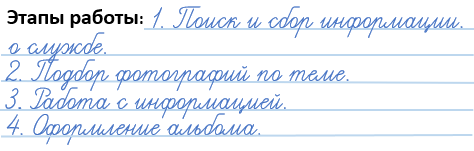 Этапы работы: 1. Поиск и сбор информации.
о службе.
2. Подбор фотографий по теме.
3. Работа с информацией.
4. Оформление альбома.